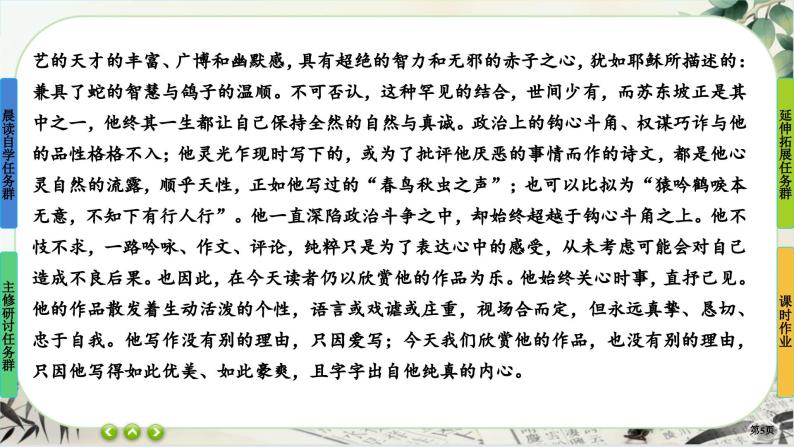 艺的天才的丰富、广博和幽默感，具有超绝的智力和无邪的赤子之心，犹如耶稣所描述的：
兼具了蛇的智慧与鸽子的温顺。不可否认，这种罕见的结合，世间少有，而苏东坡正是其
中之一，他终其一生都让自己保持全然的自然与真诚。政治上的钩心斗角、权谋巧诈与他
的品性格格不入；他灵光乍现时写下的，或为了批评他厌恶的事情而作的诗文，都是他心
灵自然的流露，顺乎天性，正如他写过的“春鸟秋虫之声”；也可以比拟为“猿吟鹤唳本
无意，不知下有行人行”。他一直深陷政治斗争之中，却始终超越于钩心斗角之上。他不
忮不求，一路吟咏、作文、评论，纯粹只是为了表达心中的感受，从未考虑可能会对自己
造成不良后果。也因此，在今天读者仍以欣赏他的作品为乐。他始终关心时事，直抒己见。
他的作品散发着生动活泼的个性，语言或戏谑或庄重，视场合而定，但永远真挚、恳切、
忠于自我。他写作没有别的理由，只因爱写；今天我们欣赏他的作品，也没有别的理由，
只因他写得如此优美、如此豪爽，且字字出自他纯真的内心。
晨读自学任务群
主修研讨任务群
延伸拓展任务群
课时作业
第5页